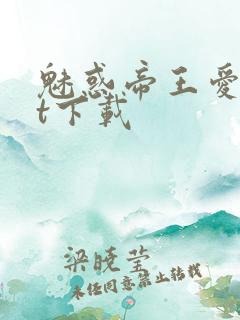 魅惑帝王爱
t下载
梁晓莹
未经同意禁止转载